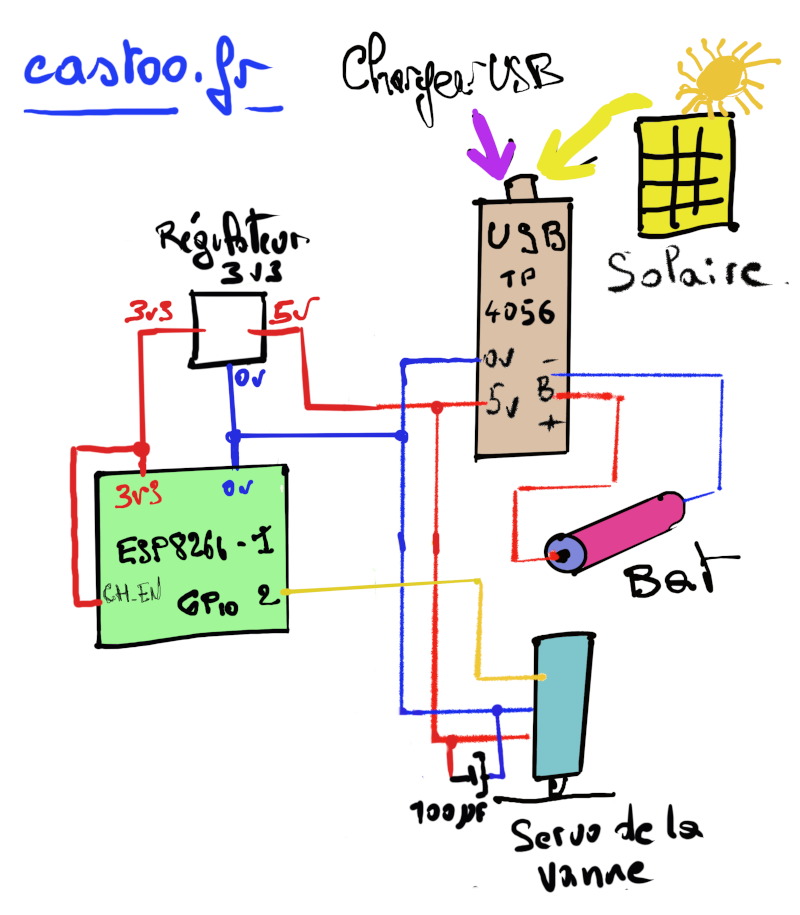 castoo.fr
Chargeur USB
Solaire.
USB
TP
4056
0V -
5V B
+
Régulateur
3V3
3v3
5V
0V
3v3
0v
ESP8266-1
CH_EN
GPIO 2
Bat
100µF
Servo de la
vanne